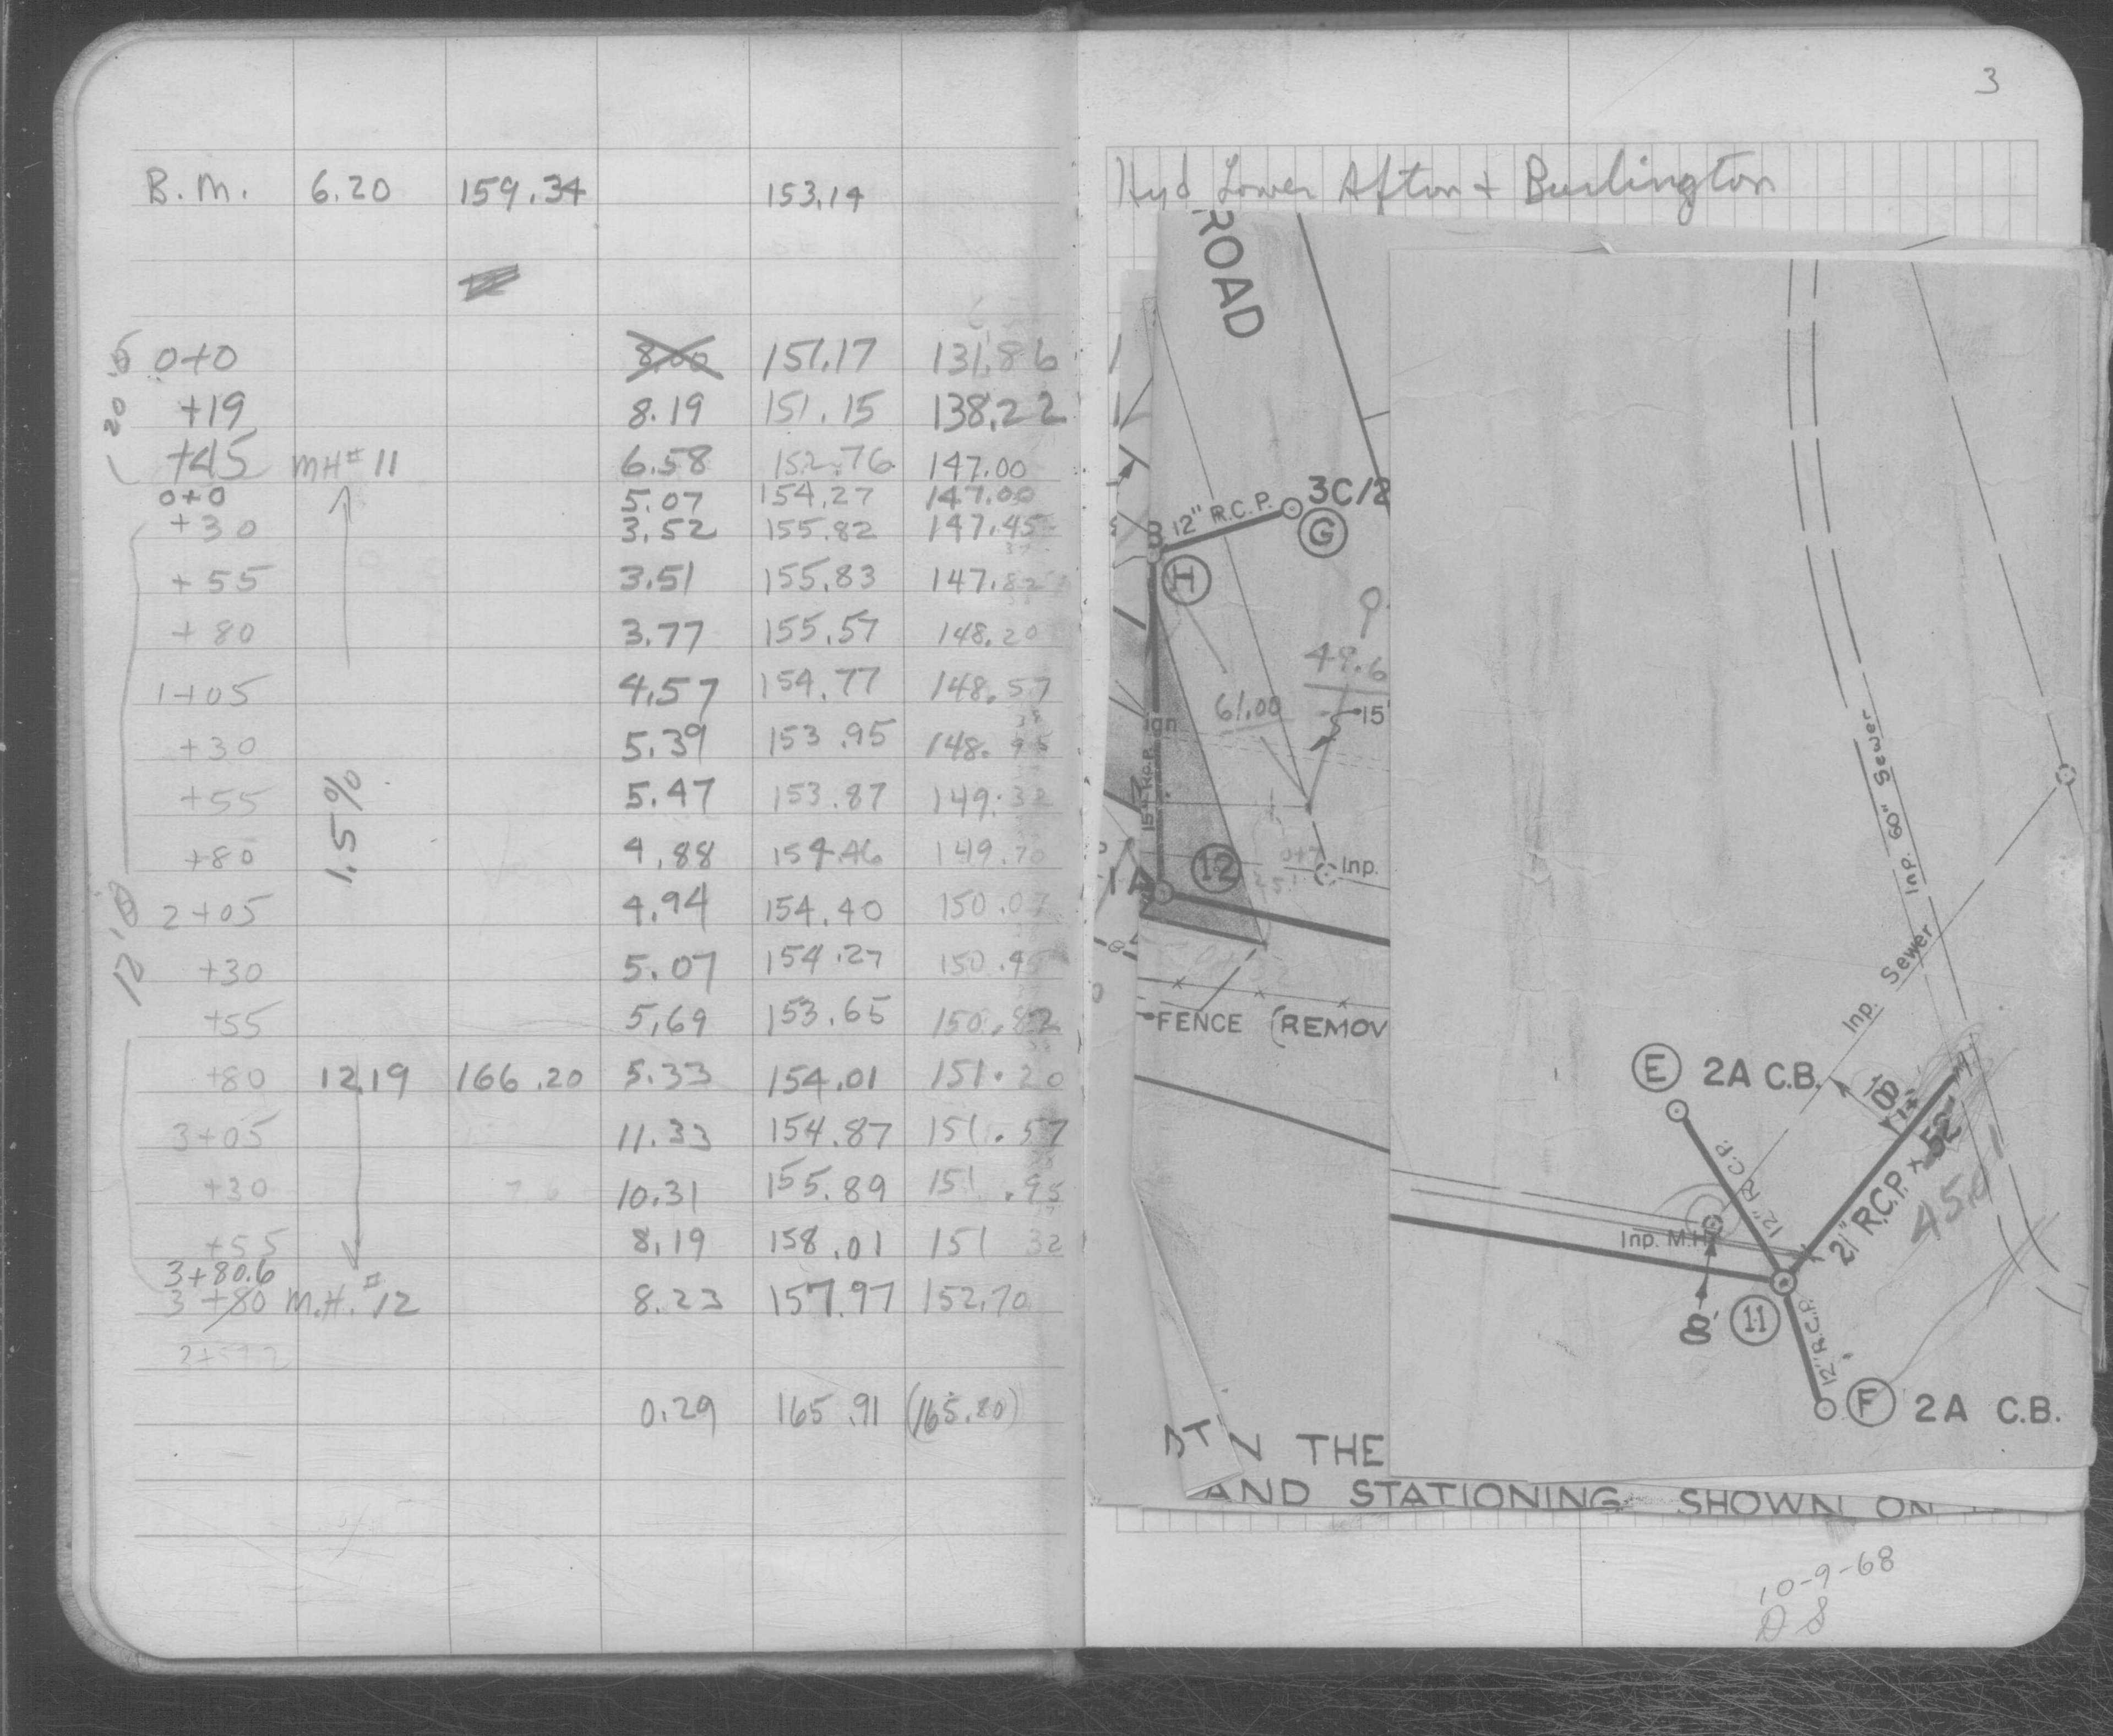 B.M. 6.20 159.34 153.14
0+0 8.00 151.17 131.86
+19 8.19 151.15 138.22
+45 MH#11 6.58 152.76 147.00
0+0 5.07 154.27 147.00
+30 3.52 155.82 147.45
+55 3.51 155.83 147.82
+80 3.77 155.57 148.20
1+05 4.57 154.77 148.57
+30 5.39 153.95 148.95
+55 5.47 153.87 149.32
+80 4.88 154.46 149.70
2+05 4.94 154.40 150.07
+30 5.07 154.27 150.45
+55 5.69 153.65 150.82
+80 12.19 166.20 5.33 154.01 151.20
3+05 11.33 154.87 151.57
+30 10.31 155.89 151.95
+55 8.19 158.01 151 32
3+80.6
3+80 M.H.#12 8.23 157.97 152.70
0.29 165.91 (165.80)
1.5%
3
Hyd Lower Afton + Burlington
ROAD
3C/2
12" R.C.P.
G
H
49.6
61.00
15'
15" R.C.P.
12
Inp.
FENCE (REMOV
Inp. 60" Sewer
Inp. Sewer
E 2A C.B.
18'±
12" R.C.P.
21" R.C.P. x 52'
45.0
Inp. M.H.
8'
11
12" R.C.P.
F 2A C.B.
N THE
AND STATIONING SHOWN ON
10-9-68
DS